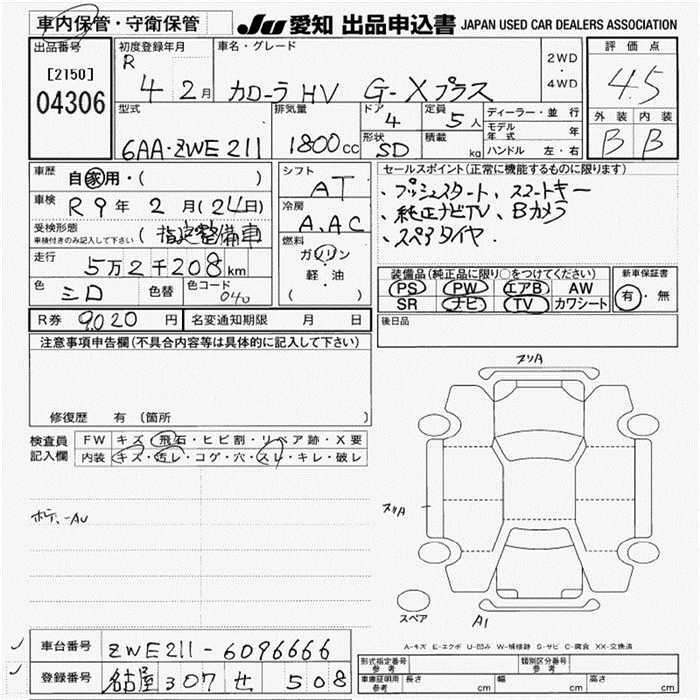 車内保管・守衛保管
JU 愛知 出品申込書 JAPAN USED CAR DEALERS ASSOCIATION
出品番号
[2150]
04306
初度登録年月
R 4 2 月
車名・グレード
カローラ HV G-Xプラス
2WD
・
4WD
評価点
4.5
外装 内装
B B
型式
6AA・ZWE211
排気量
1800 cc
ドア
4
定員
5 人
形状
SD
積載
kg
ディーラー・並行
モデル年式 年
ハンドル 左・右
車歴
自家用・( )
車検
R 9 年 2 月 (24日)
受検形態
車検付きのみ記入して下さい
(指定整備車
走行
5万2千208 km
色
シロ
色替
色コード
040
シフト
AT
冷房
A.AC
燃料
ガソリン
軽・油
( )
セールスポイント(正常に機能するものに限ります)
・プッシュスタート、スマートキー
・純正ナビTV、Bカメラ
・スペアタイヤ.
装備品(純正品に限り○をつけてください)
PS PW エアB AW
SR ナビ TV カワシート
新車保証書
有・無
R券 9,020 円
名変通知期限 月 日
後日品
注意事項申告欄(不具合内容等は具体的に記入して下さい)
修復歴 有 (箇所
検査員
記入欄
FW キズ・飛石・ヒビ割・リペア跡・X要
内装 キズ・汚レ・コゲ・穴・スレ・キレ・破レ
ボデーAU
スリA
スリA
スペア
A1
A-キズ E-エクボ U-凹み W-補修跡 S-サビ C-腐食 XX-交換済
車台番号
ZWE211-6096666
登録番号
名古屋 307 せ 508
型式指定番号
参考
類別区分番号
参考
車庫証明用
参考
長さ cm
幅 cm
高さ cm